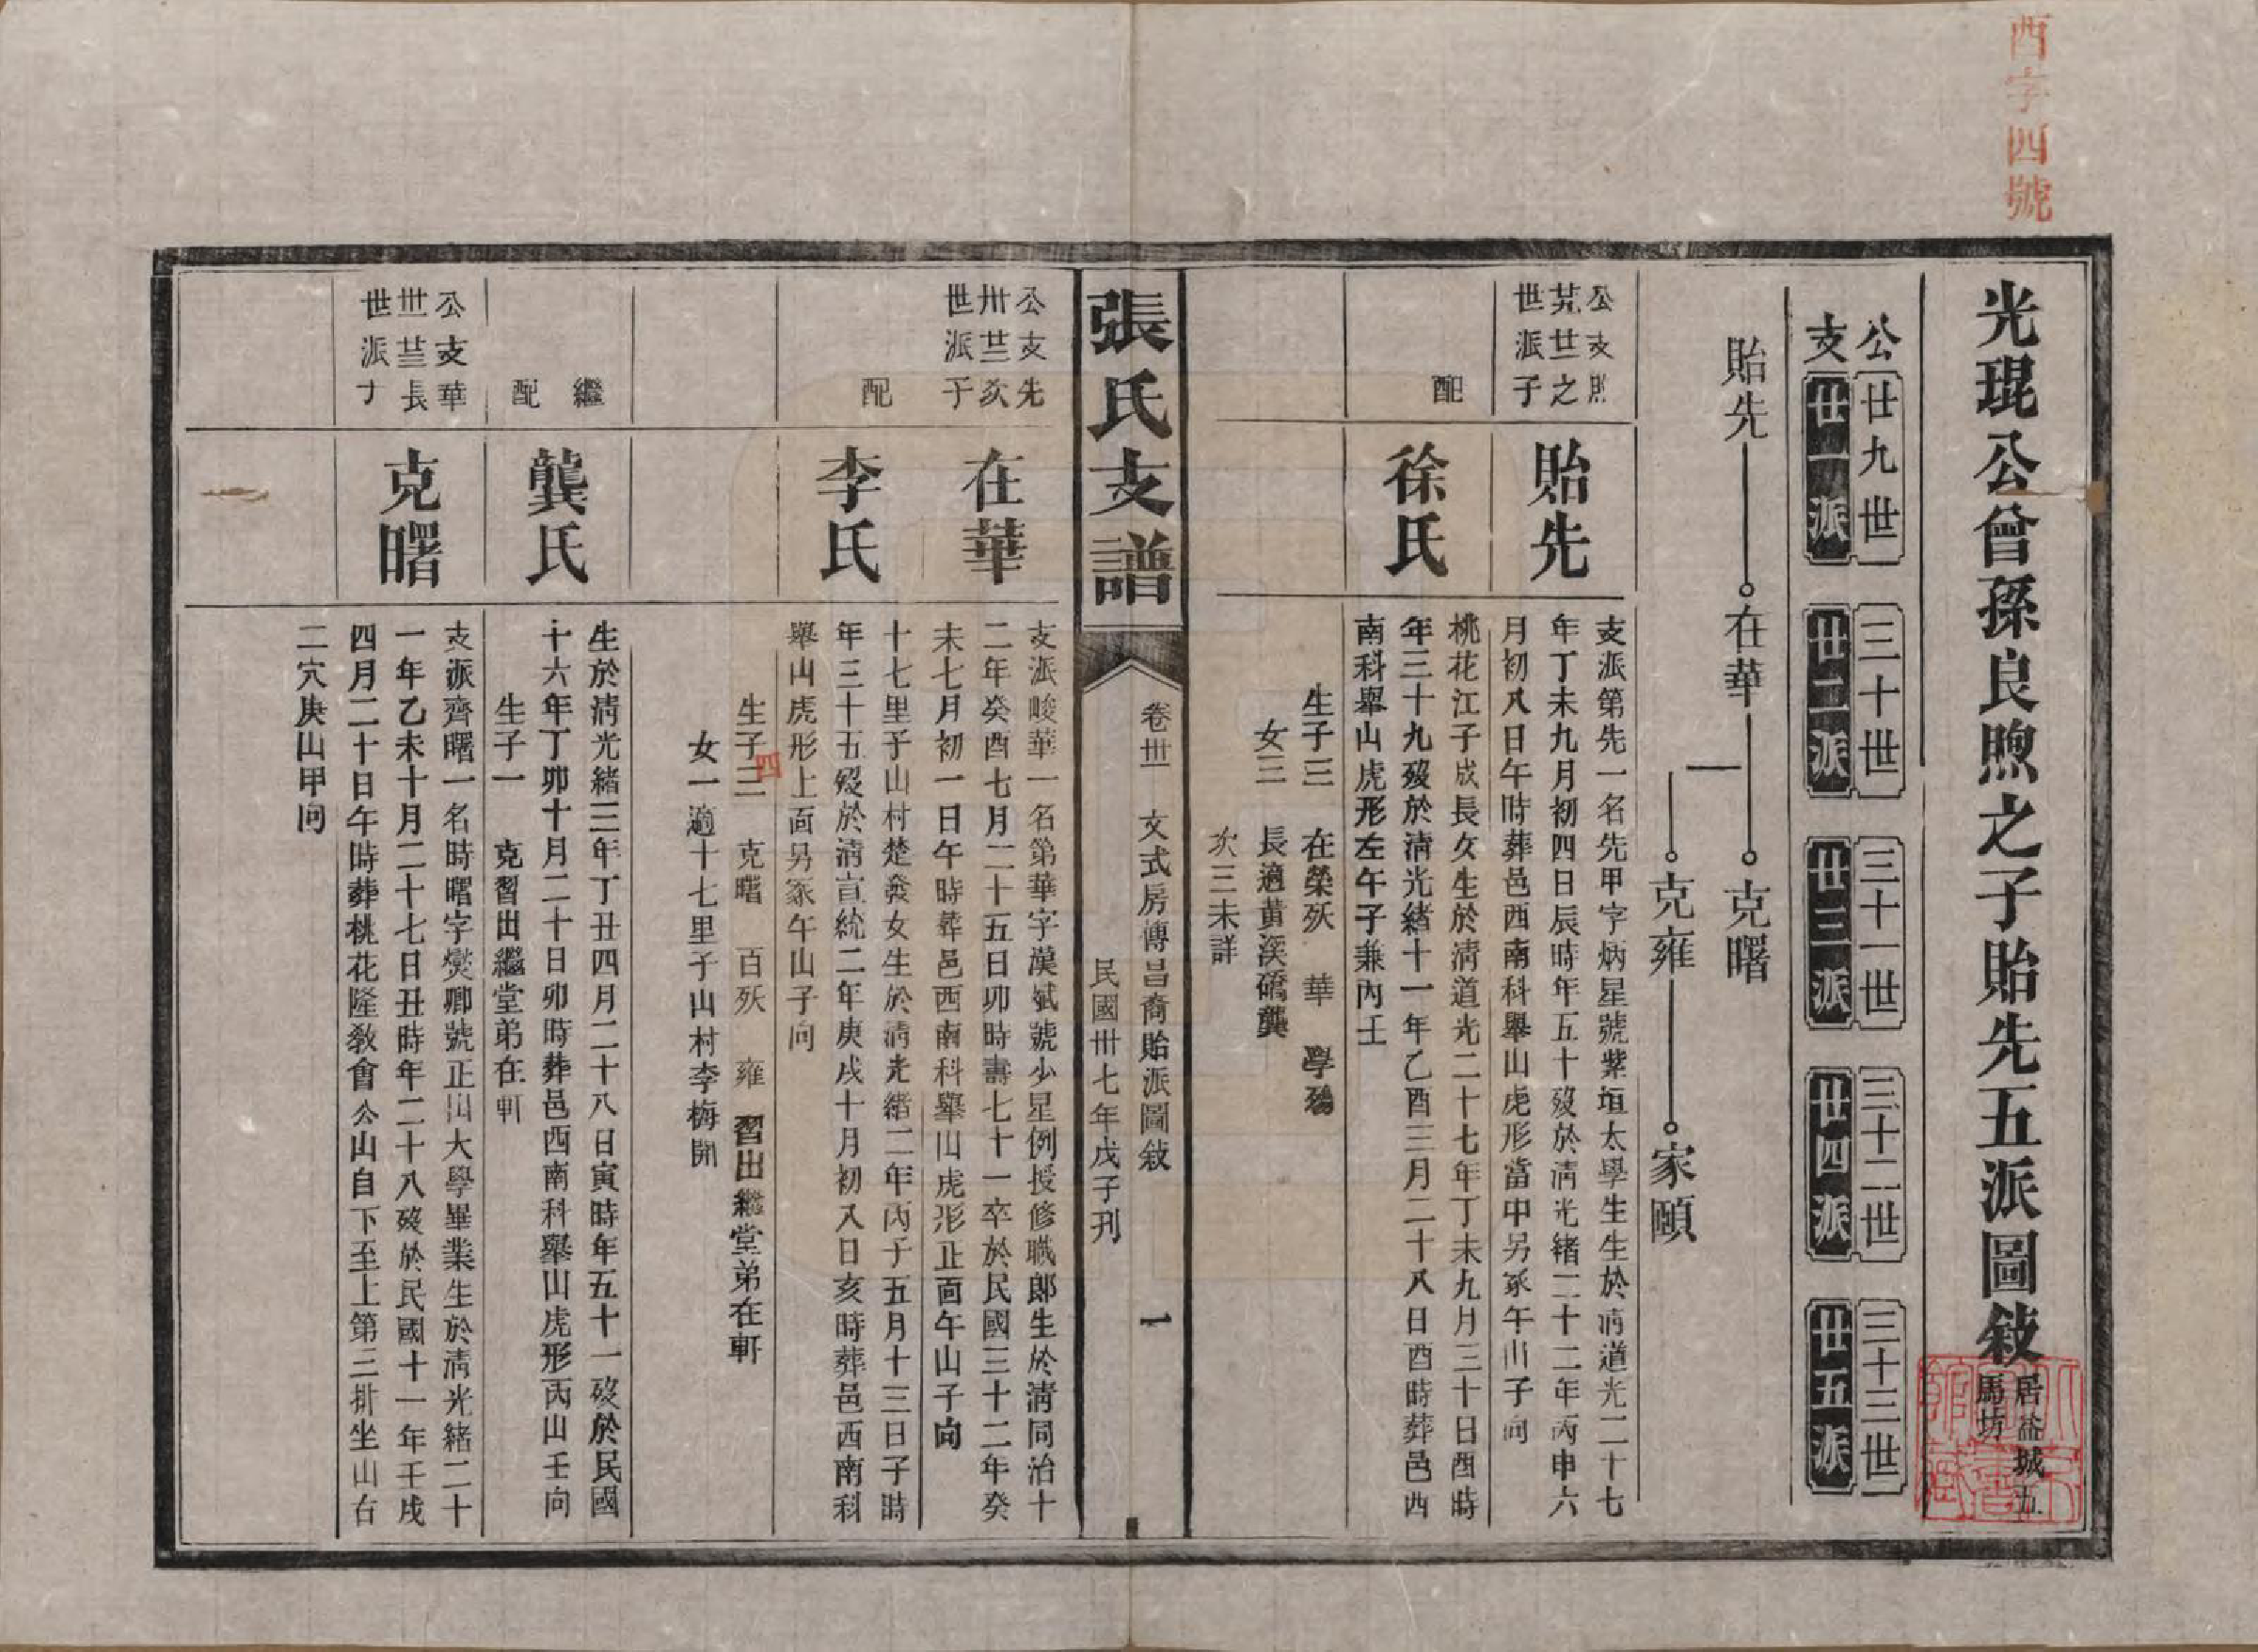 酉字四號
光琨公曾孫良煦之子貽先五派圖敍
居益城五
馬坊
公 廿九世 三十世 三十一世 三十二世 三十三世
支 廿一派 廿二派 廿三派 廿四派 廿五派
貽先 在華 克曙
克雍 家頤
公支煦
世之
世派子
貽先
支派第先一名先甲字炳星號紫垣太學生生於清道光二十七
年丁未九月初四日辰時年五十歿於清光緒二十二年丙申六
月初八日午時葬邑西南科舉山虎形當中另冢午山子向
配
徐氏
桃花江子成長女生於清道光二十七年丁未九月三十日酉時
年三十九歿於清光緒十一年乙酉三月二十八日酉時葬邑西
南科舉山虎形左午子兼丙壬
生子三 在榮殀 華 學殤
女三 長適黃溪礄龔
次三未詳
張氏支譜
卷卅一 文式房傳昌裔貽派圖敍 一
民國卅七年戊子刊
公支先
卅廿二次
世派子
在華
支派峻華一名第華字漢斌號少星例授修職郎生於清同治十
二年癸酉七月二十五日卯時壽七十一卒於民國三十二年癸
未七月初一日午時葬邑西南科舉山虎形正面午山子向
配
李氏
十七里子山村楚發女生於清光緒二年丙子五月十三日子時
年三十五歿於清宣統二年庚戌十月初八日亥時葬邑西南科
舉山虎形上面另冢午山子向
生子三 四 克曙 百殀 雍 習出繼堂弟在軒
女一適十七里子山村李梅開
繼
配
龔氏
生於清光緒三年丁丑四月二十八日寅時年五十一歿於民國
十六年丁卯十月二十日卯時葬邑西南科舉山虎形丙山壬向
生子一 克習出繼堂弟在軒
公支華
卅廿三長
世派子
克曙
支派齊曙一名時曙字燮卿號正山大學畢業生於清光緒二十
一年乙未十月二十七日丑時年二十八歿於民國十一年壬戌
四月二十日午時葬桃花隆敎會公山自下至上第三排坐山右
二穴庚山甲向